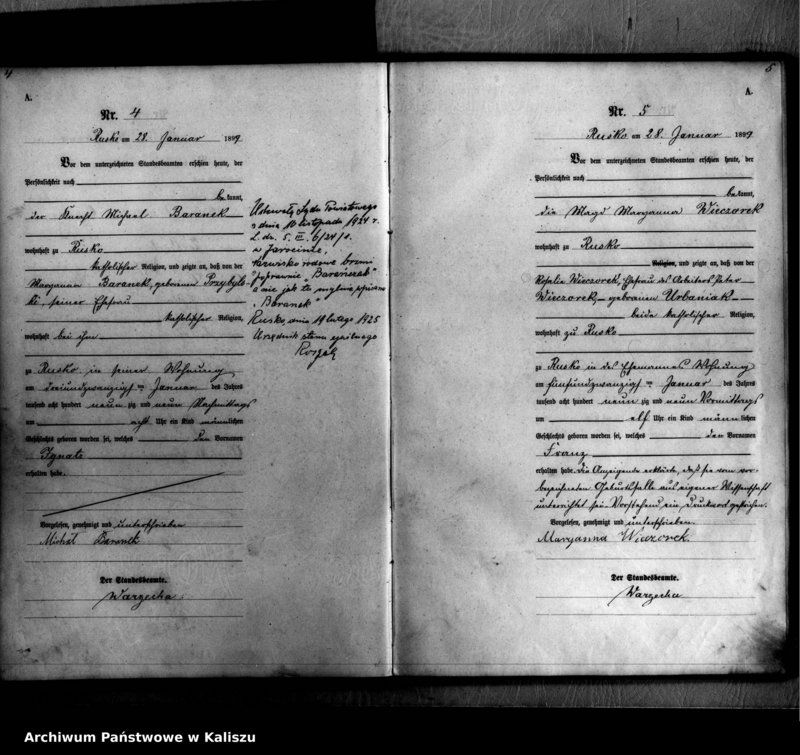 4
A.
Nr. 4
Rusko am 28. Januar 1899
Vor dem unterzeichneten Standesbeamten erschien heute, der
Persönlichkeit nach
bekannt,
der Knecht Michael Baranek
wohnhaft zu Rusko
katholischer Religion, und zeigte an, daß von der
Maryanna Baranek, geborenen Przybyls-
ki, seiner Ehefrau
katholischer Religion,
wohnhaft bei ihm
zu Rusko in seiner Wohnung
am dreiundzwanzigsten Januar des Jahres
tausend acht hundert neunzig und neun Nachmittags
um acht Uhr ein Kind männlichen
Geschlechts geboren worden sei, welches den Vornamen
Ignatz
erhalten habe.
Vorgelesen, genehmigt und unterschrieben
Michał Baranek
Der Standesbeamte.
Warzecha.
Uchwałą Sądu Powiatowego
z dnia 10 listopada 1924 r.
w Jarocinie,
Nazwisko rodowe brzmi
poprawnie "
a nie jak tu mylnie wpisano
"Baranek"
Rusko, dnia 14 lutego 1925
Urzędnik stanu cywilnego
5
A.
Nr. 5
Rusko am 28. Januar 1899
Vor dem unterzeichneten Standesbeamten erschien heute, der
Persönlichkeit nach
bekannt,
die Magd Maryanna Wieczorek
wohnhaft zu Rusko
Religion, und zeigte an, daß von der
Rosalie Wieczorek, Ehefrau des Arbeiters Peter
Wieczorek, geborenen Urbaniak
beide katholischer Religion,
wohnhaft zu Rusko
zu Rusko in des Ehemannes Wohnung
am fünfundzwanzigsten Januar des Jahres
tausend acht hundert neunzig und neun Vormittags
um elf Uhr ein Kind männlichen
Geschlechts geboren worden sei, welches den Vornamen
Franz
erhalten habe. Die Anzeigende erklärte, daß sie von vor-
bezeichneten Geburtsfalle aus eigener Wissenschaft
unterrichtet sei. Vorstehend ein Druckwort gestrichen.
Vorgelesen, genehmigt und unterschrieben.
Maryanna Wieczorek.
Der Standesbeamte.
Warzecha
Archiwum Państwowe w Kaliszu